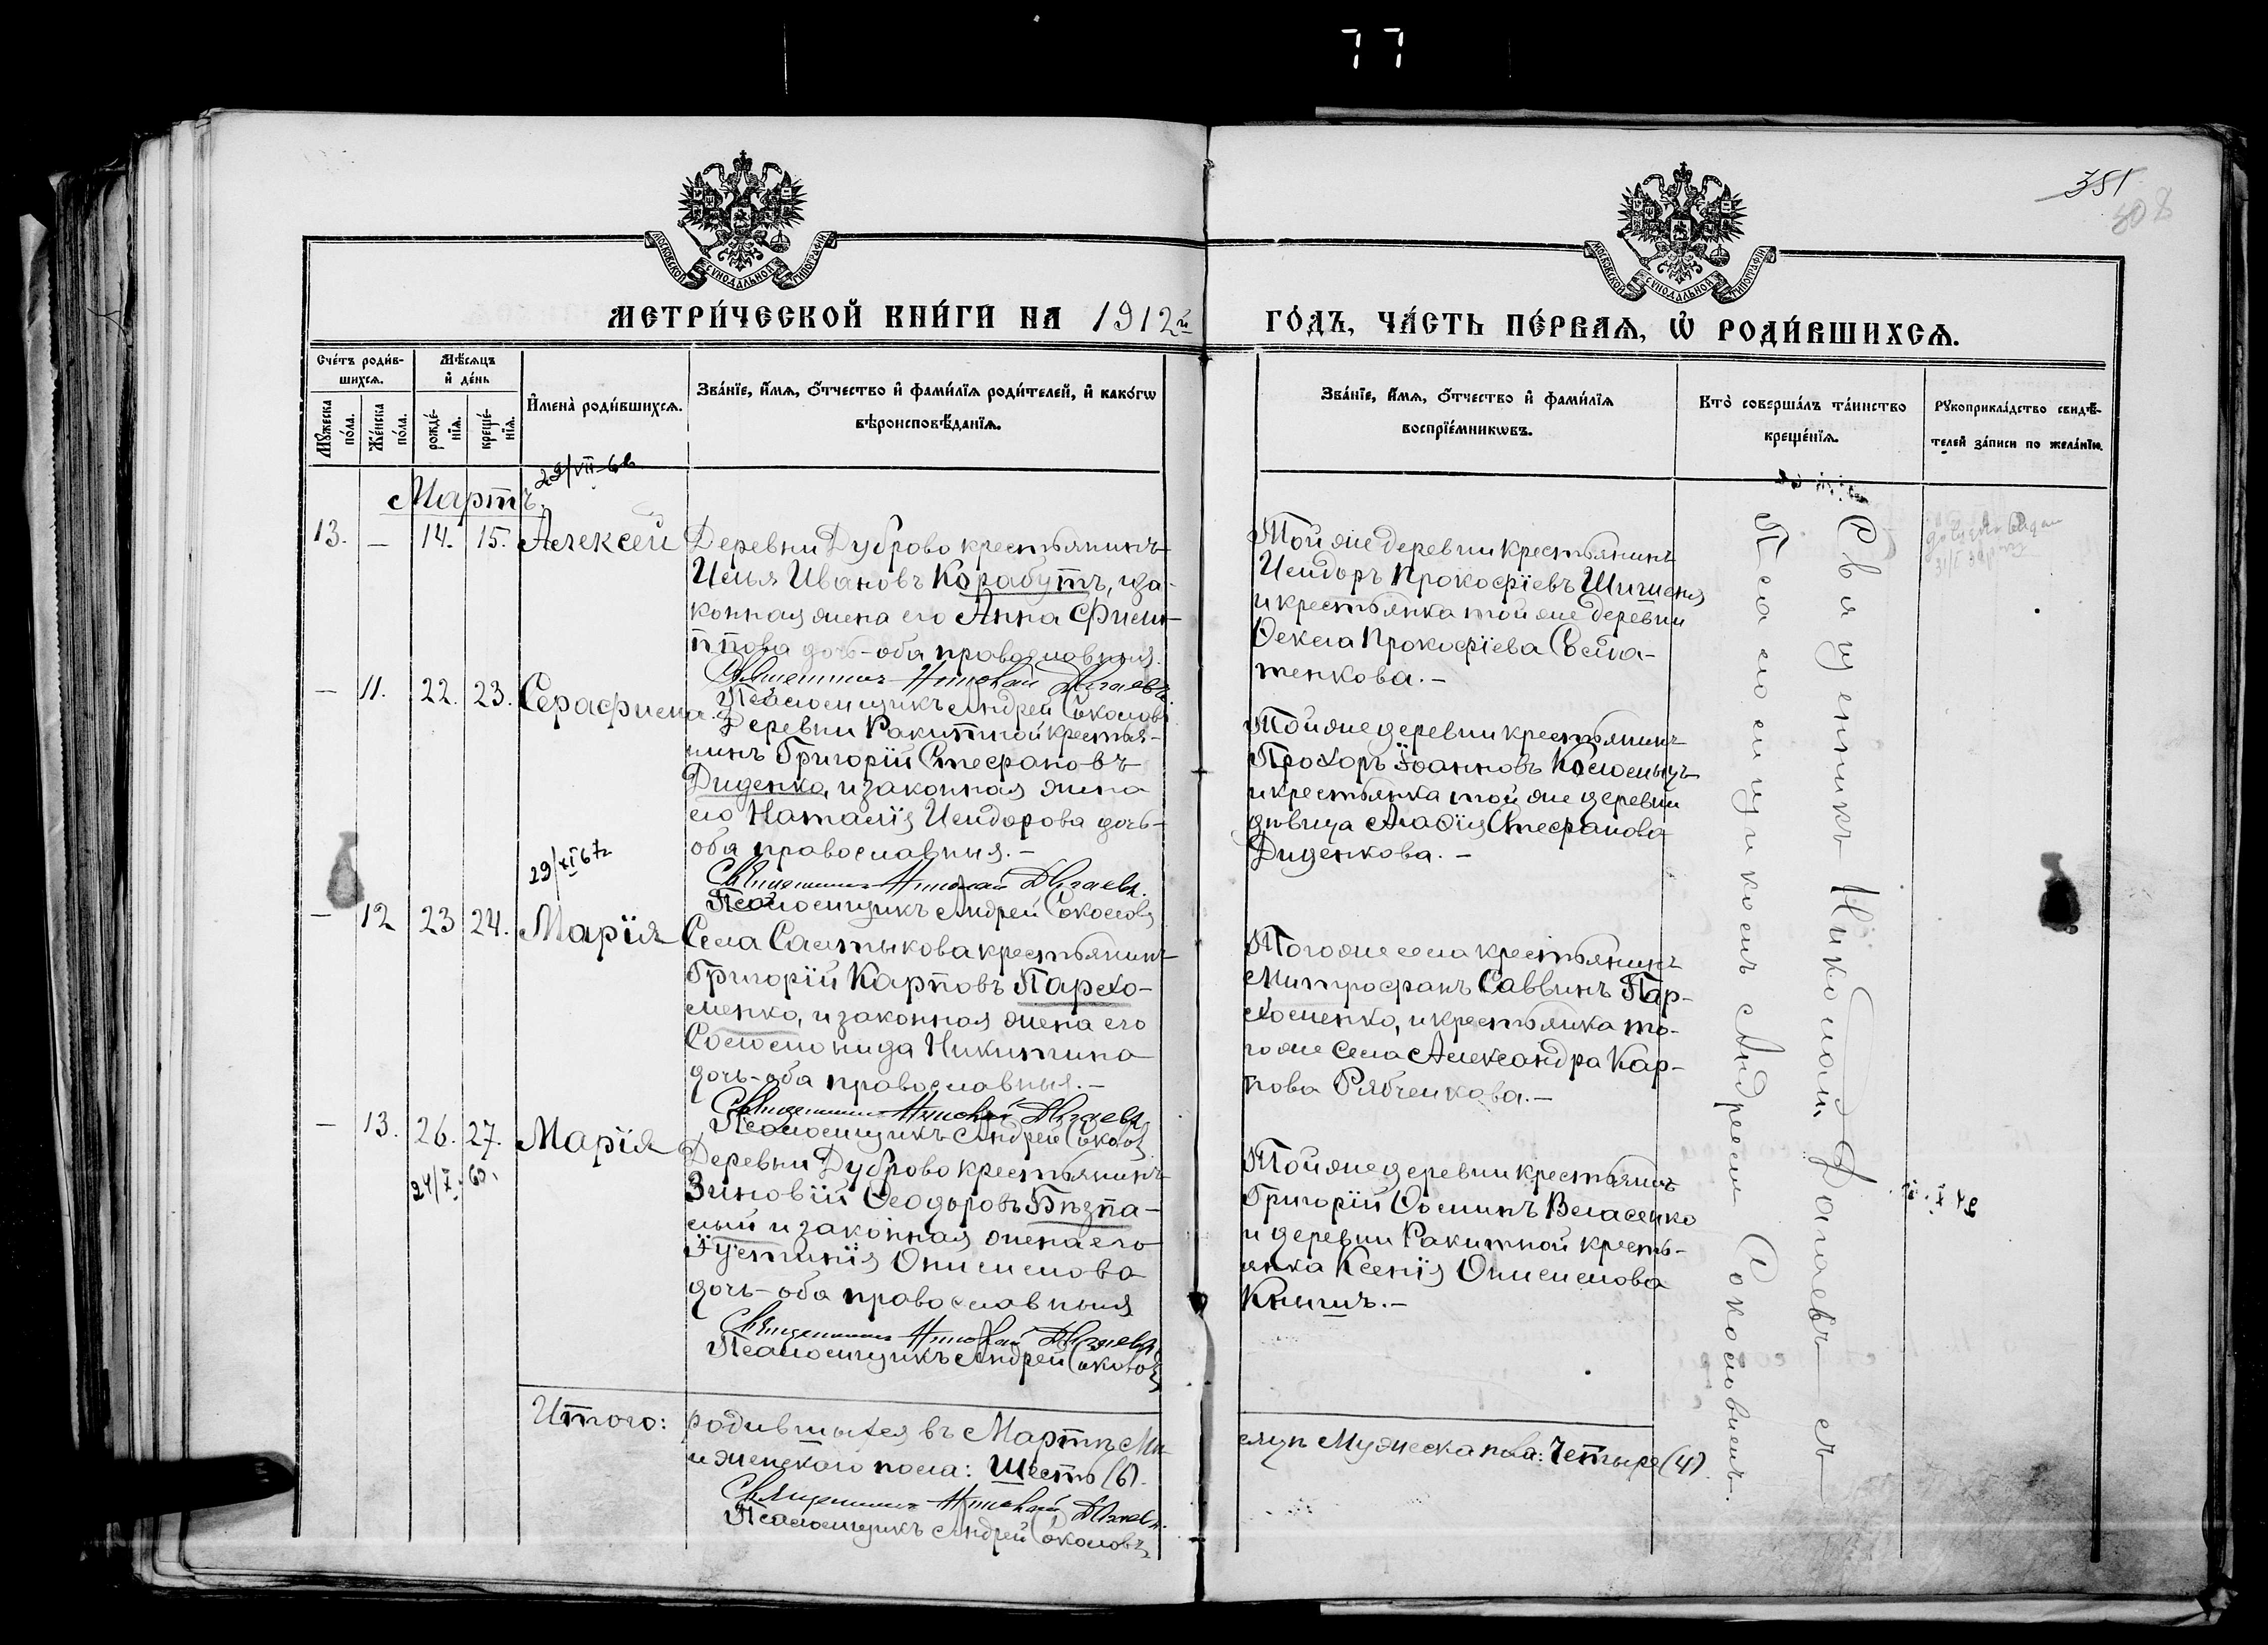 77
351
308
МОСКОВСКОЙ СѴНОДАЛЬНОЙ ТИПОГРАФІИ
МОСКОВСКОЙ СѴНОДАЛЬНОЙ ТИПОГРАФІИ
МЕТРИ́ЧЕСКОЙ КНИ́ГИ НА 1912й
ГО́ДЪ, ЧА́СТЬ ПЕ́РВАЯ, Ѡ҆ РОДИ́ВШИХСЯ.
Сче́тъ роди́в-
шихся.
Мꙋ́жеска по́ла.
Же́нска по́ла.
Мѣ́сяцъ
и҆ де́нь
рожде́-
нїя.
креще́-
нїя.
И҆мена̀ роди́вшихся.
Зва́нїе, и҆́мя, о҆́тчество и҆ фами́лїя роди́телей, и҆ како́гѡ
вѣроисповѣ́данїя.
Зва́нїе, и҆́мя, о҆́тчество и҆ фами́лїя
воспрїе́мникѡвъ.
Кто̀ соверша́лъ та́инство
креще́нїя.
Рꙋкоприкла́дство свидѣ́-
телей за́писи по жела́нїю.
29/VII-6
Мартъ.
13. — 14. 15. Алексей
Деревни Дуброво крестьянинъ
Илья Ивановъ Корабутъ, и за-
конная жена его Анна Филип-
пова дочь - оба православныя.
Священникъ Николай Дугаевъ
Псаломщикъ Андрей Соколовъ
Той же деревни крестьянинъ
Исидоръ Прокофіевъ Шишеня
и крестьянка той же деревни
Ѳекла Прокофіева
тенкова. —
— 11. 22. 23. Серафима.
Деревни Ракитной крестья-
нинъ Григорій Стефановъ
Диденко, и законная жена
его Наталія Исидорова дочь -
оба православныя. —
Священникъ Николай Дугаевъ.
Псаломщикъ Андрей Соколовъ
Той же деревни крестьянинъ
Прохоръ Іоанновъ
и крестьянка той же деревни
дѣвица Агаѳія Стефанова
Диденкова. —
29/XI 67г
— 12 23 24. Марія
Села Салтыкова крестьянинъ
Григорій Карповъ Пархо-
менко, и законная жена его
Соломонида Никитина
дочь - оба православныя. —
Священникъ Николай Дугаевъ
Псаломщикъ Андрей Соколовъ
Того же села крестьянинъ
Митрофанъ Саввинъ Пар-
хоменко, и крестьянка то-
го же села Александра Кар-
пова Рябченкова. —
— 13. 26. 27. Марія
24/X. 60.
Деревни Дуброво крестьянинъ
Зиновій Ѳеодоровъ Безпа-
лый и законная жена его
Іустинія Онисимова
дочь - оба православныя
Священникъ Николай Дугаевъ
Псаломщикъ Андрей Соколовъ
Той же деревни крестьянинъ
Григорій Ѳоминъ Власенко
и деревни Ракитной кресть-
янка Ксенія Онисимова
Книшъ. —
Священникъ Николай Дугаевъ — съ
Псаломщикомъ Андреемъ Соколовымъ.
Итого: родившихся въ Мартѣ Мѣ-
сяцѣ Мужеска пола: Четыре (4)
и женскаго пола: Шесть (6).
Священникъ Николай Дугаевъ.
Псаломщикъ Андрей Соколовъ